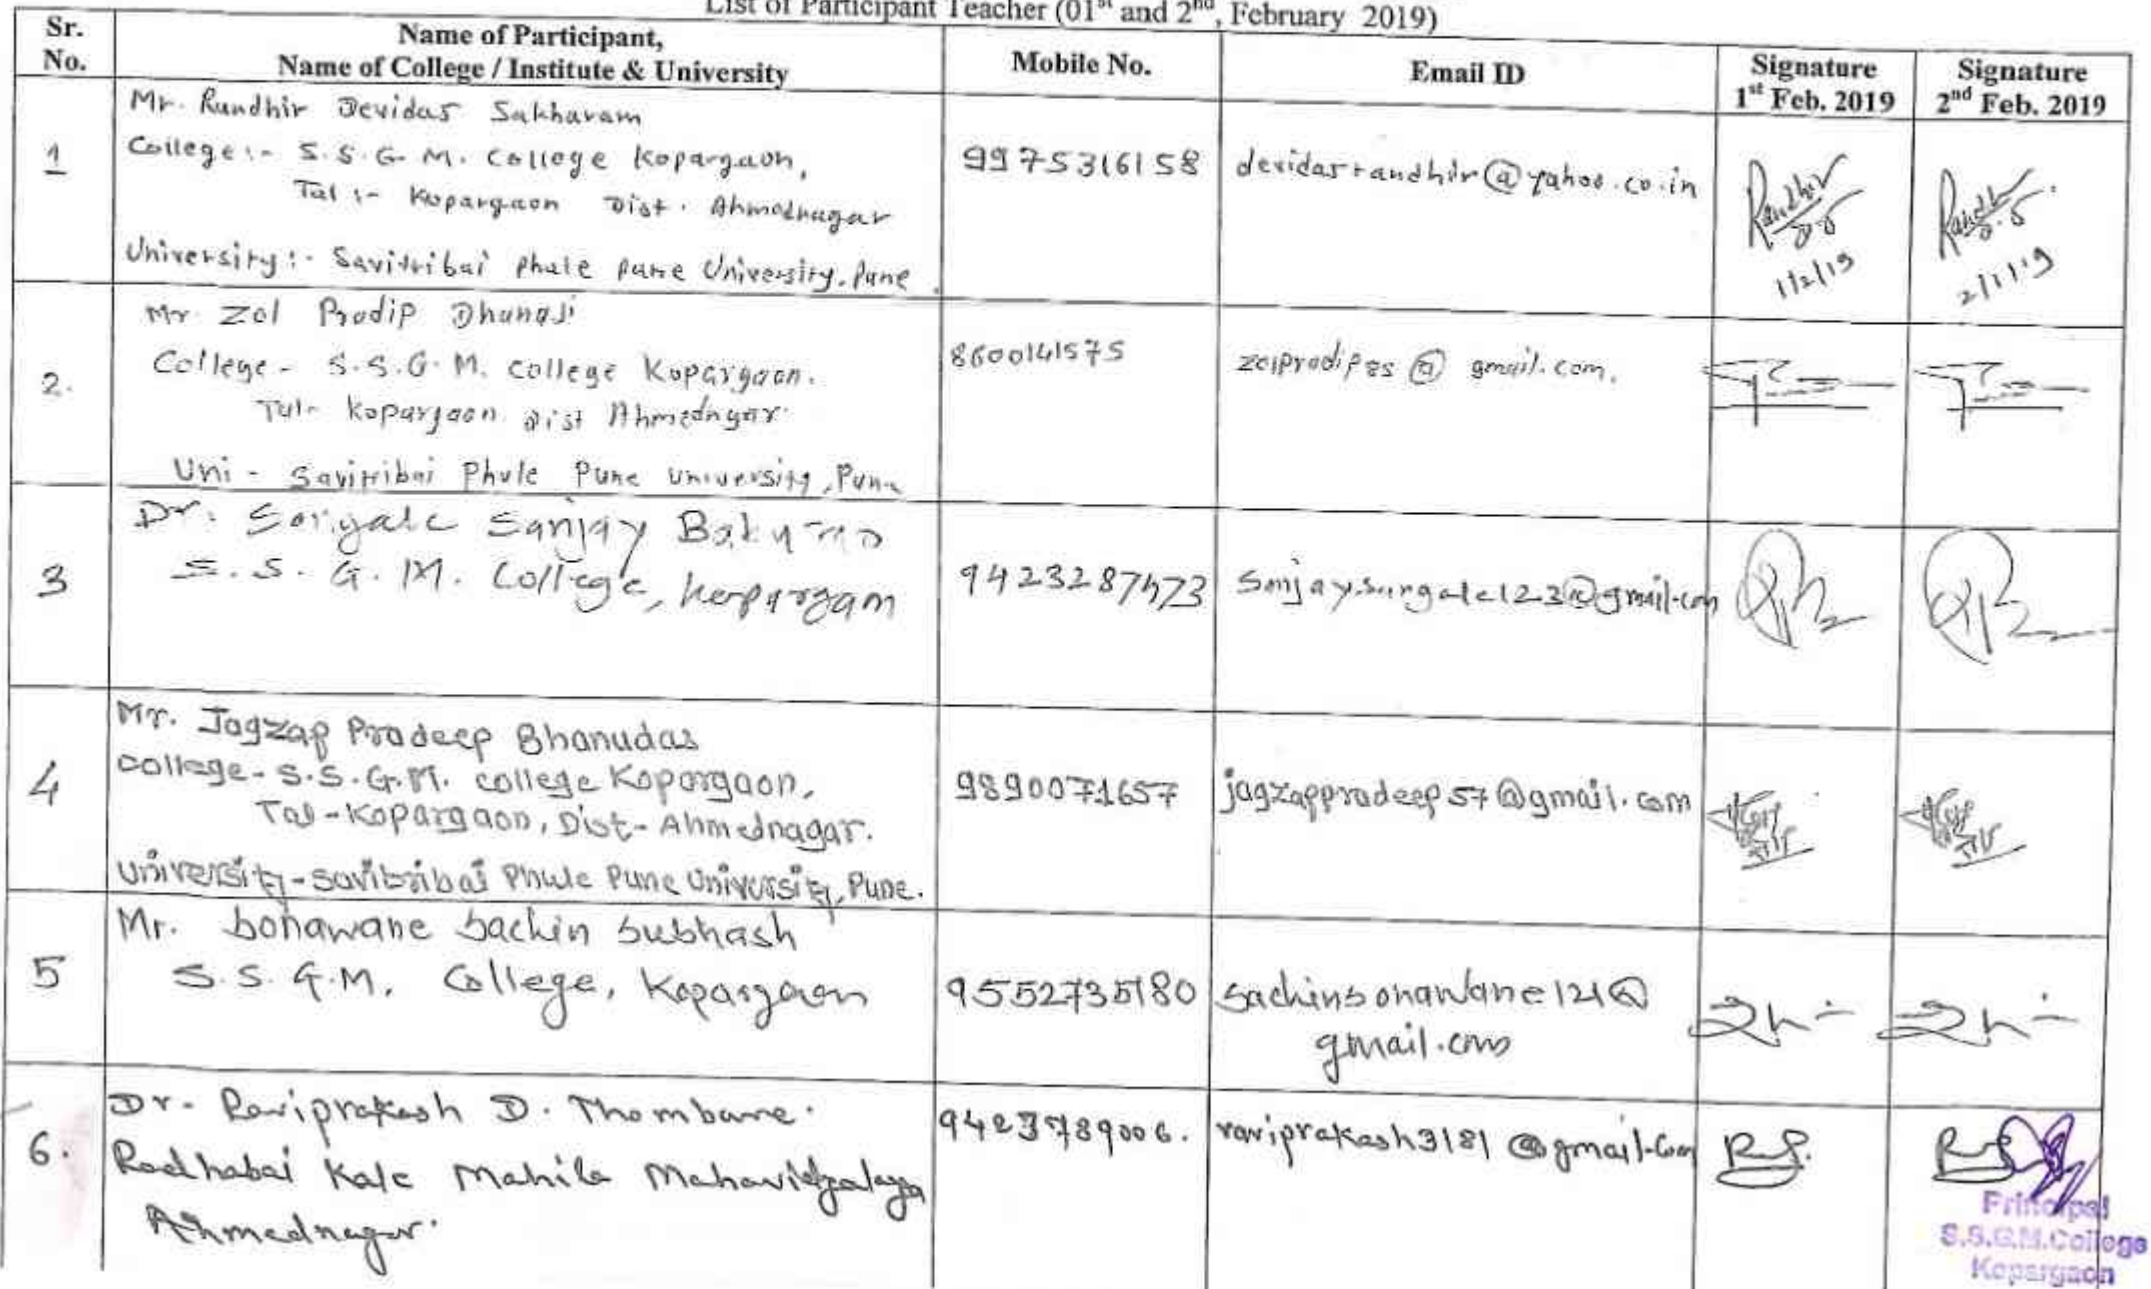 List of Participant Teacher (01st and 2nd, February 2019)
Sr. No.
Name of Participant,
Name of College / Institute & University
Mobile No.
Email ID
Signature
1st Feb. 2019
Signature
2nd Feb. 2019
1
Mr. Randhir Devidas Sakharam
College:- S.S.G.M. College Kopargaon,
Tal :- Kopargaon Dist. Ahmednagar
University:- Savitribai Phule Pune University, Pune
9975316158
devidasrandhir@yahoo.co.in
Randhir
1/2/19
2/1/19
2.
Mr Zol Pradip Dhanaji
College - S.S.G.M. College Kopargaon.
Tal- Kopargaon Dist Ahmednagar
Uni - Savitribai Phule Pune University, Pune
8600141575
zolpradip85@gmail.com.
3
Dr. Sanjay
S.S.G.M. College, Kopargaon
9423287473
4
Mr. Jagzap Pradeep Bhanudas
College- S.S.G.M. college Kopargaon,
Tal-Kopargaon, Dist-Ahmednagar.
University-Savitribai Phule Pune University, Pune.
9890071657
jagzappradeep57@gmail.com
5
Mr. Sonawane Sachin Subhash
S.S.G.M. College, Kopargaon
9552735180
sachinsonawane121@
gmail.com
6.
Dr. Raviprakash D. Thombare.
Radhabai Kale Mahila Mahavidyalaya
Ahmednagar.
9423789006.
raviprakash3181@gmail.com
Principal
S.S.G.M.College
Kopargaon